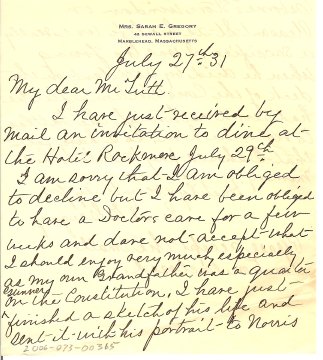 MRS. SARAH E. GREGORY
42 SEWALL STREET
MARBLEHEAD, MASSACHUSETTS
July 27th 31
My dear Mr Tutt.
I have just received by
mail an invitation to dine at
the Hotel Rockmere July 29th.
I am sorry that I am obliged
to decline but I have been obliged
to have a Doctors care for a few
weeks and dare not accept what
I should enjoy very much especially
as my own Grandfather was a quarter
gunner
on the Constitution, I have just
finished a sketch of his life and
sent it with his portrait to Norris
2006-073-00365